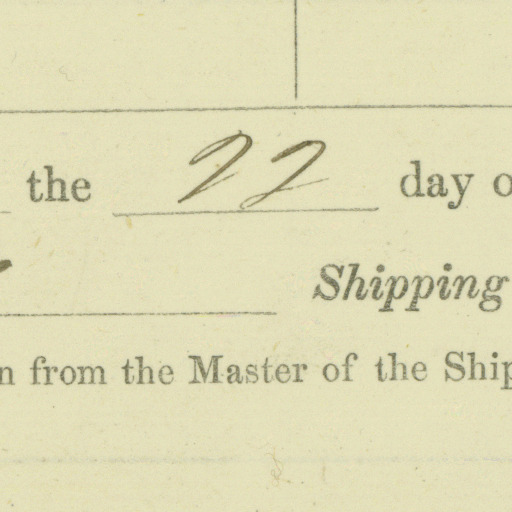 the 22 day o
Shipping
n from the Master of the Ship